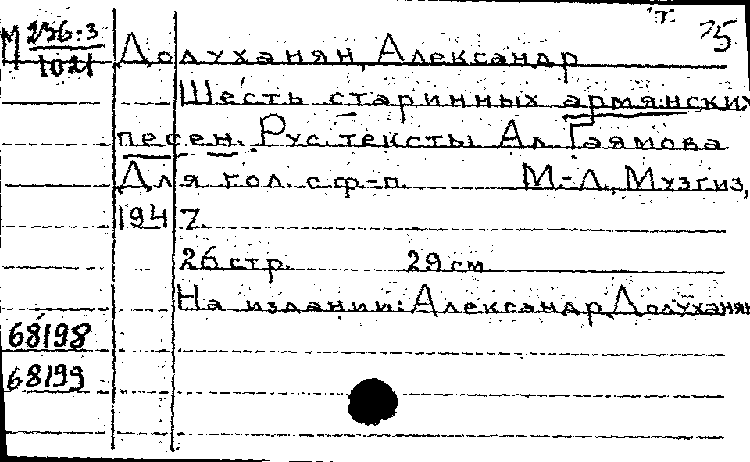 М 236:3
1021
Т
75
Долуханян, Александр
Шесть старинных армянских
песен. Рус. тексты Ал. Гаямова
Для гол. с ф-п. М.-Л., Музгиз,
1947.
26 стр. 29 см
На издании: Александр Долуханян
68198
68199